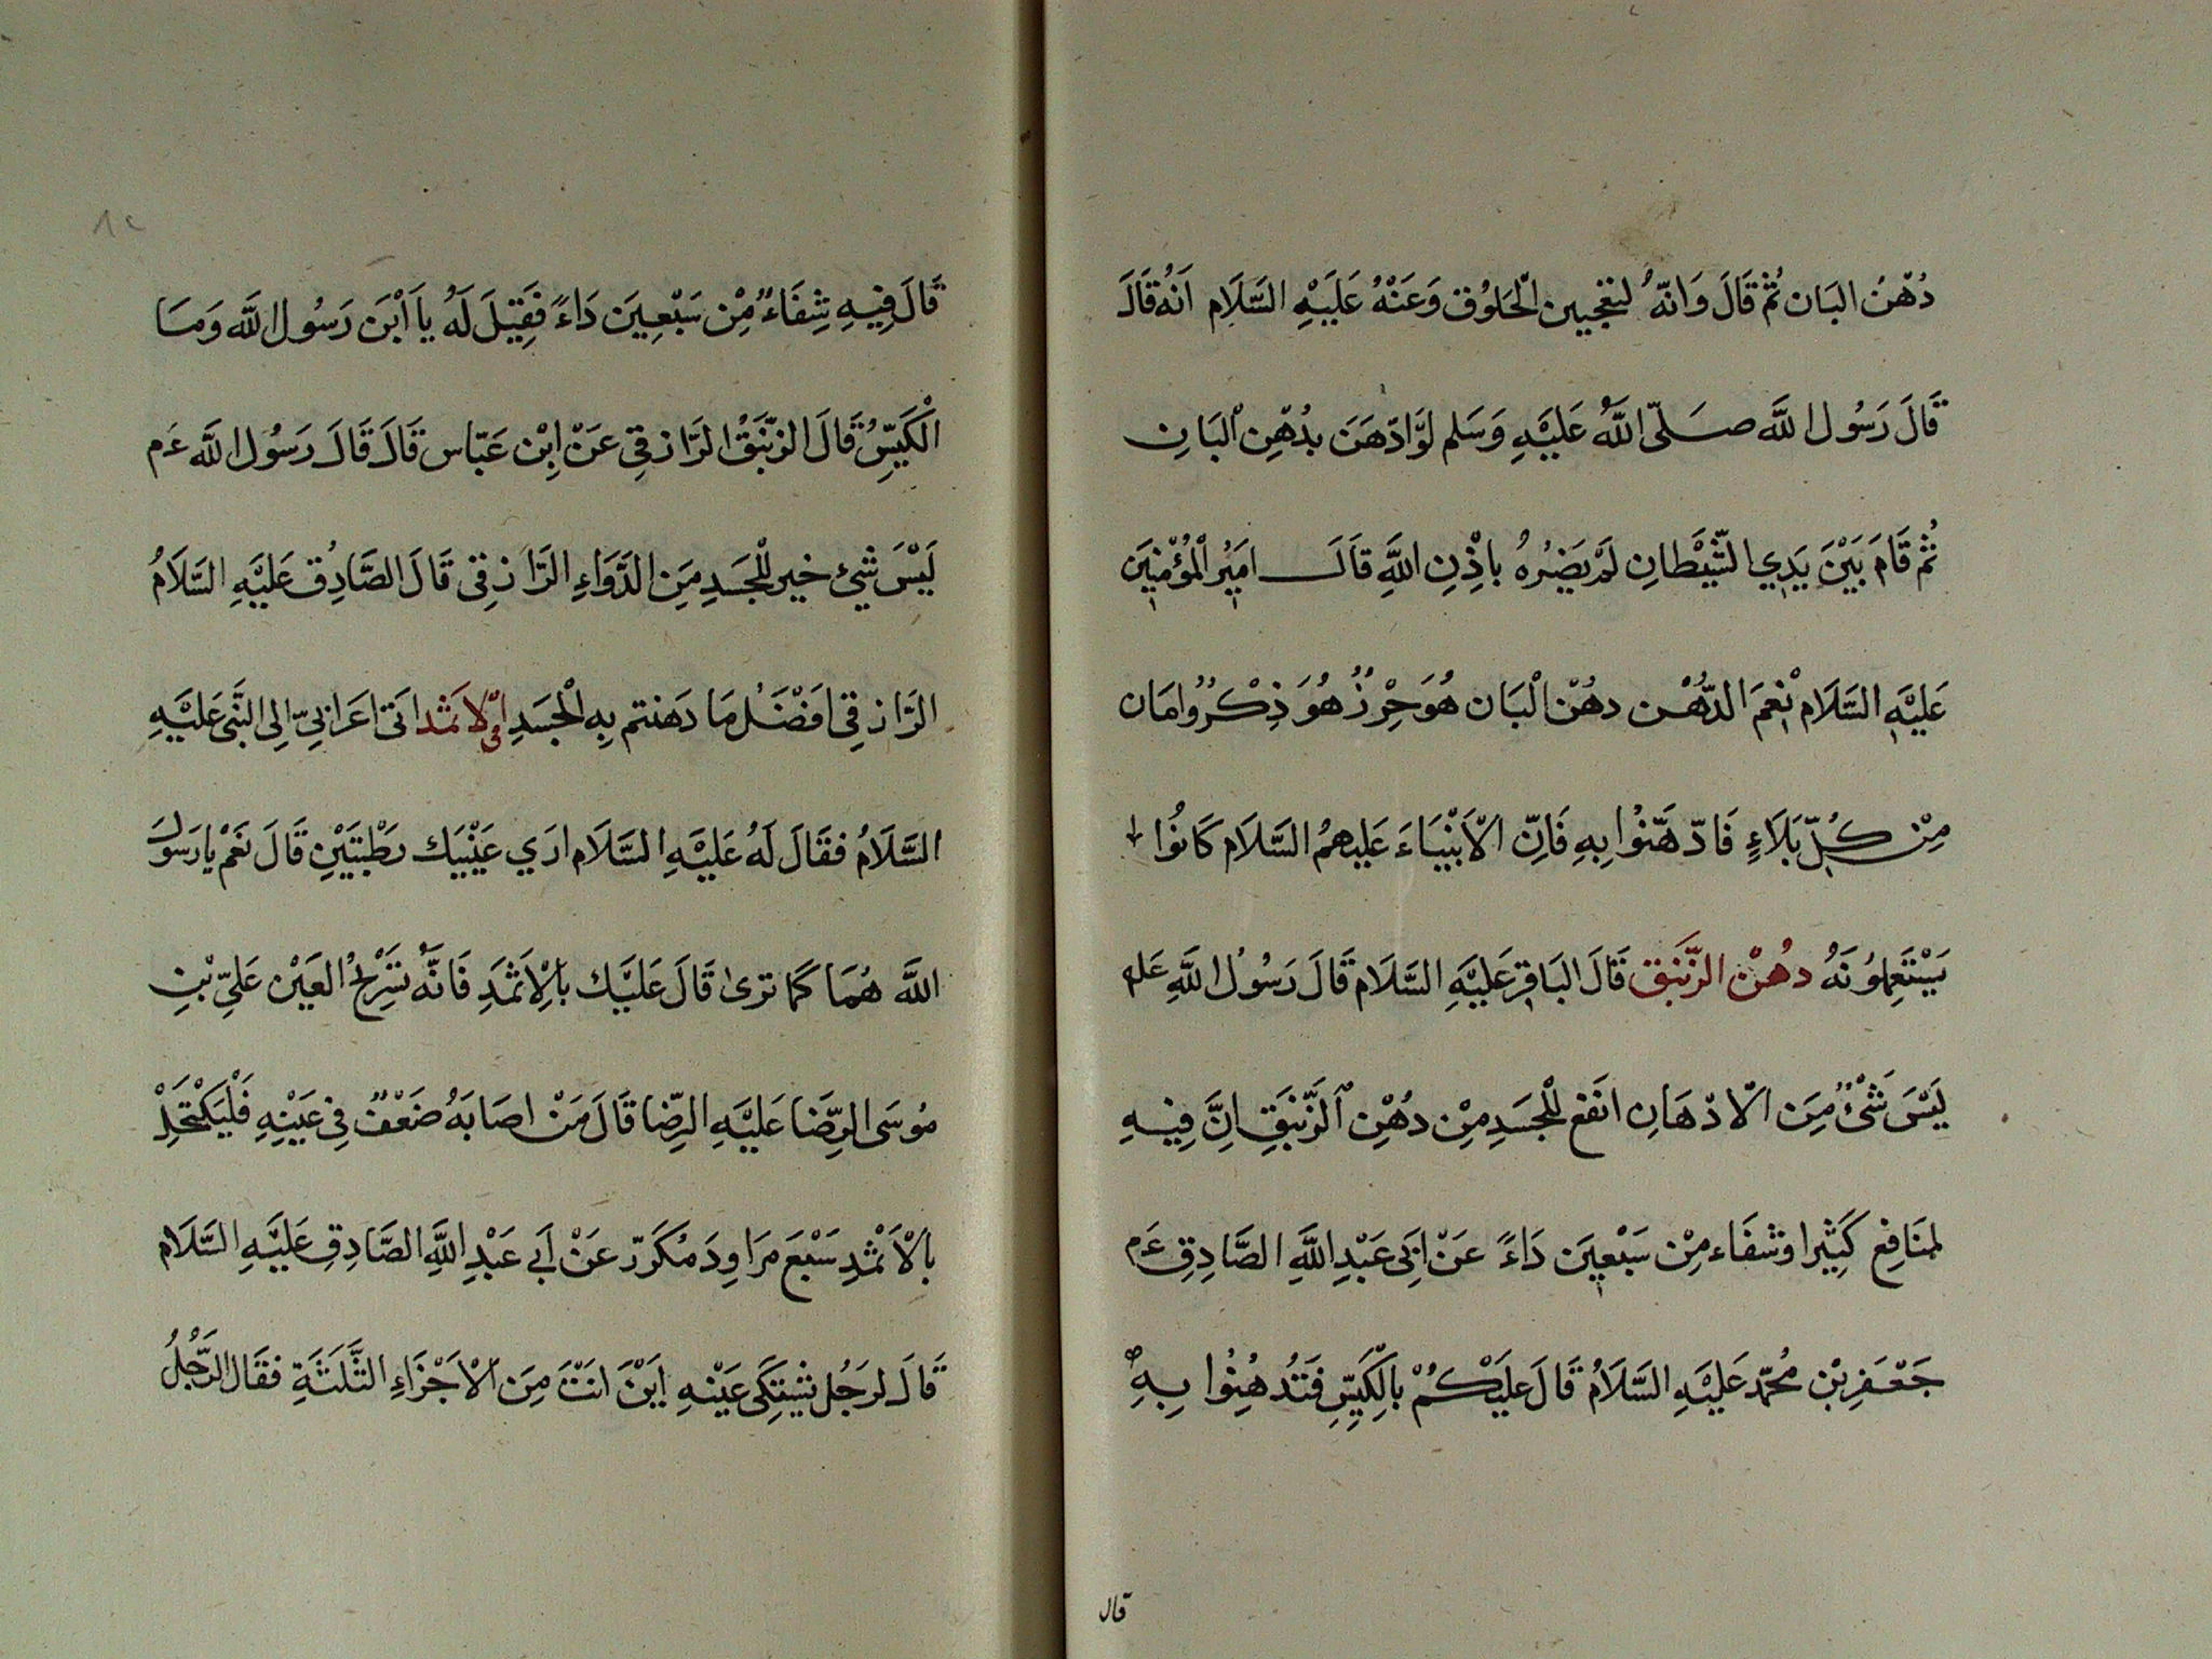 دُهْنُ البَان ثُمَّ قَالَ وَانّهُ لنعجبين الْخَلوُق وَعَنْهُ عَلَيْهِ السَّلَام اَنهُ قَالَ
قَالَ رَسُول اللَّه صَلّى اللَّهُ عَلَيْهِ وَسَلم لَوّادّهَنَ بدُهْنِ الْبَانِ
ثُمَّ قَامَ بَيْنَ يَدِي الشَّيْطانِ لَمْ يَضُرهُ باذِْنِ اللَّهِ قَالَ اميَرُ الْمؤُمْنِيَن
عَليَْهِ السَّلَام نِْعمَ الدُّهْن دهُنْ الْبَان هُوَحِرْزٌ هُوَ ذِكْرٌ وامَان
مِنْ كُلِّ بَلَاءٍ فَادّهَّنُوا بِهِ فَاِنّ الْاَنْبيَاءَ عَليهمُ السَّلَام كَانُوا
يَسْتَعِملُونَهُ دهُنْ الزّنَبق قَالَ البَاقِر عَليَْهِ السَّلَام قَالَ رَسُولُ اللَّهِ عَلم
لَيْسَ شَئْ ٌ مِنَ الّادْهَانِ انَفَع لْلِجسَدِ مِنْ دهُْنِ الزَّنبَقِ اِنَّ فِيهِ
لمنَافِعِ كَثِيرا وشفَاء مِنْ سَبْعيِنَ دَاءً عَنْ اَبِى عَبْدِ اللَّهِ الصَّادِقِ عَم
جَعْفَرِبْنِ مُحَمّد عَليَْهِ السَّلَامُ قَالَ عَليَْكُمْ بالْكَيِّسِ فَتَدُهِنُوا بِهِ
قال
قَالَ فِيهِ شِفَاءٌ مِنْ سَبْعِينَ دَاءً فَقِيلَ لَهُ ياَ ابْنَ رَسُول اللَّه وَمَا
الْكَيِّسُ قَالَ الزنَّبَقُ الرَّازقِى عَنْ اِبْن عَبّاس قَالَ قَالَ رَسُول اللَّه عَم
لَيْسَ شَئ خير لْلِجَسَدِ مِنَ الدَّوَاءِ الرَّازقِى قَالَ الصَّادِق عَليَْهِ السَّلَامُ
الرَّازقِى افَضْلُ مَا دهَنتم بِهِ الْجسَدِ فى الْاثمَد اتَى اعَرابِىّ الِى النَّبى عَليَْهِ
السَّلَامُ فقَالَ لَهُ عَليَْهِ السَّلَام ارَي عَيْنيَك رطَْبتَيْنِ قَالَ نَعَمْ يارَسوُلَ
اللَّه هُمَا كمَا ترىٰ قَالَ عَلَيْك بالْاِثمَدِ فَانّهُ سَرْجُ العَيْن عَليِّ بْنِ
مُوسَى الرِّضَا عَلَيْهِ الرِّضا قَالَ مَنْ اصَابَهُ ضَعْفٌ فى عَيْنِهِ فَلْيَكْتَحِلْ
بالْاَثمْدِ سَبْعَ مَرَاوِدَ مكَرّر عَنْ اَبي عَبْدِ اللَّهِ الصَّادِقِ عَليَْهِ السَّلَام
قَالَ لرَجُل يشِتكَى عَيْنهِ اَيْنَ انَتْ مِنَ الْاَجَزْاءِ الثَّلثَةِ فقَالَ الرَّجُلُ